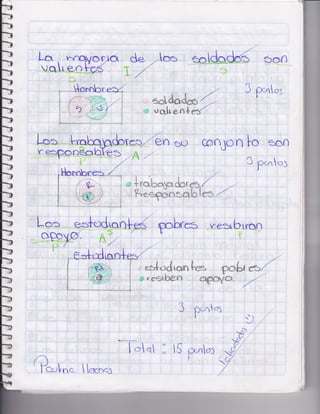 La mayoria de los soldados son
valientes. I
S S
Hombres
S V
soldados
valientes
3 puntos
Los trabajadores en su conjunto son
responsables A
P
3 puntos
Hombres
R
trabajadores
Responsables
Los estudiantes pobres resibiron
apoyo. A S P
P
Estudiantes
estudiantes pobres
resiben apoyo.
3 puntos
Total: 15 puntos
Paulina